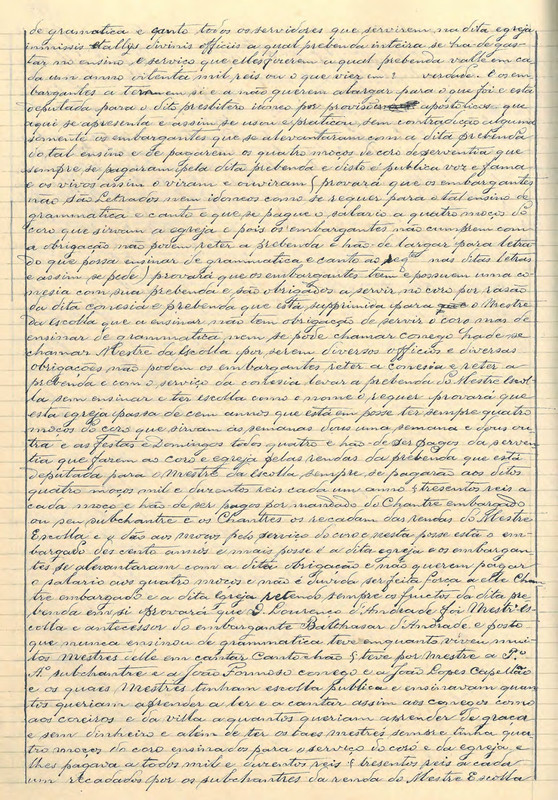 de grammatica e canto todos os servidores que servirem na dita egreja
inmissis dallys divinis officiis a qual prebenda inteira se ha de gas-
tar no ensino e serviço que elles fizerem a qual prebenda valle em ca-
da um anno oitenta mil reis ou o que vier em verdade. E os em-
bargantes a tomem si e a não querem alargar para o que foi e está
deputada para o dito presbitero idoneo por provisões apostolicas que
aqui se apresenta e assim se usou e praticou sem contradição alguma
somente os embargantes que se alevantaram com a dita prebenda
do tal ensino e de pagarem os quatro moços do coro de serventia que
sempre se pagaram pela dita prebenda e disto é publica voz e fama
e os vivos assim o viram e ouviram provará que os embargantes
não são letrados nem idoneos como se requer para o tal ensino de
grammatica e canto e que se pague o salario a quatro moços do
coro que sirvam a egreja e pois os embargantes não cumprem com
a obrigação não podem reter a prebenda e hão-de largar para letra-
do que possa ensinar de grammatica e canto ao nas ditas letras
e assim se pede) provará que os embargantes tem e possuem uma co-
nesia com sua prebenda e são obrigados a servir no coro por rasão
da dita conesia e prebenda que está supprimida para o Mestre
da Escolla que a ensinar não tem obrigação de servir o coro mas de
ensinar de grammatica nem se póde chamar conego hade-se
chamar Mestre da Escolla por serem diversos officios e diversas
obrigações não podem os embargantes reter a conesia e reter a
prebenda e com o serviço da conesia levar a prebenda do Mestre Escol-
la sem ensinar e ter escolla como o nome o requer provará que
esta egreja passa de cem annos que está em posse ter sempre quatro
moços do coro que sirvam ás semanas dous uma semana e dous ou-
tra e as Festas e Domingos todos quatro e hão-de ser pagos da serven-
tia que fazem ao coro e egreja pelas rendas da prebenda que está
deputada para o Mestre da Escolla sempre se pagarão aos ditos
quatro moços mil e duzentos reis cada um anno tresentos reis a
cada moço e hão de ser pagos por mandado do Chantre embargado
ou seu subchantre e os Chantres os recadam das rendas do Mestre
Escolla e o dão aos moços pelo serviço do coro e nesta posse está o em-
bargado des cento annos e mais posse e a dita egreja e os embargan-
tes se alevantaram com a dita obrigação e não querem pagar
o salario aos quatro moços e não é duvida ser feita força a elle Chan-
tre embargado e a dita Egreja retendo sempre os fructos da dita pre-
benda em si provará que D. Lourenço d'Andrade foi Mestr'Es-
colla e antecessor do embargante Balthasar d'Andrade e posto
que nunca ensinou de grammatica teve enquanto viveu mui-
tos Mestres colle em cantar Cantochão teve por Mestre a P.º
A.º subchantre e a João Formoso conego e a João Lopes Capellão
e os quaes Mestres tinham escolla publica e ensinavam quan-
tos queriam aprender a ler e a cantar assim aos conegos como
aos coreiros e da villa a quantos queriam aprender de graça
e sem dinheiro e alem de ter os taes mestres sempre tinha qua-
tro moços do coro ensinados para o serviço do coro e da egreja, e
lhes pagava a todos mil e duzentos reis tresentos reis a cada
um recadados por os subchantres da renda do Mestre Escolla